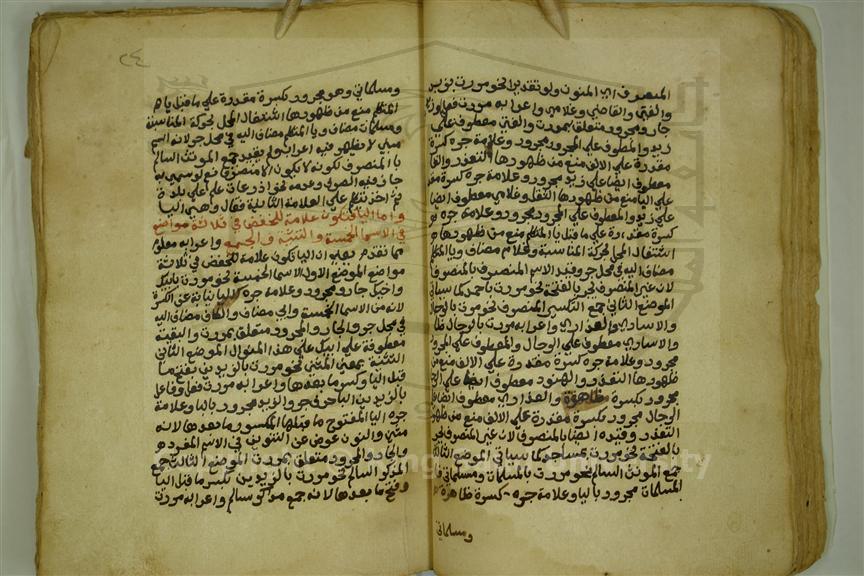 المنصرف اي المنون ولو تقديرا نحو مررت بزيد
والفتى والقاضي وغلامي واعرابه مررت فعل وفاعل
جار ومجرور متعلق بمررت والفتى معطوف على
زيد والمعطوف على المجرور مجرور وعلامة جره كسرة
مقدرة على الالف منع من ظهورها التعذر والقاضي
معطوف ايضا على زيد مجرور وعلامة جره كسرة مقدرة
على اليا منع من ظهورها الثقل وغلامي معطوف ايضا
على زيد والمعطوف على المجرور مجرور وعلامة جره
كسرة مقدرة على ما قبل يا المتكلم منع من ظهورها
اشتغال المحل لحركة المناسبة وغلام مضاف ويا المتكلم
مضاف اليه في محل جر وقيد الاسم المنصرف بالمنصرف
لان غير المنصرف يجر بالفتحة نحو مررت باحمد كما سياتي
الموضع الثاني جمع التكسير المنصرف نحو مررت بالرجال
والاسارى والعذارى واعرابه مررت بالرجال ظاهر
والاسارى معطوف على الرجال والمعطوف على المجرور
مجرور وعلامة جره كسرة مقدرة على الالف منع من
ظهورها التعذر والهنود معطوف ايضا على الرجال
مجرور بكسرة ظاهرة والعذارى معطوف ايضا على
الرجال مجرور بكسرة مقدرة على الالف منع من ظهورها
التعذر وقيده ايضا بالمنصرف لان غير المنصرف يجر
بالفتحة نحو مررت بمساجد كما سياتي الموضع الثالث
جمع المونث السالم نحو مررت بالمسلمات ومسلماتي
المسلمات مجرور باليا وعلامة جره كسرة ظاهرة
ومسلماتي
٢٤
ومسلماتي وهو مجرور بكسرة مقدرة على ما قبل يا
المتكلم منع من ظهورها اشتغال المحل بحركة المناسبة
ومسلمات مضاف ويا المتكلم مضاف اليه في محل جر لانه اسم
مبني لا يظهر فيه اعراب ولم يقيد جمع المونث السالم
بالمنصرف لكونه لا يكون الا منصرفا نعم لو سمي به
جاز فيه الصرف وعدمه نحو اذرعات علم على بلدة
ثم اخذ يتكلم على العلامة الثانية فقال وهي اليا
واما اليا فتكون علامة للخفض في ثلاثة مواضع
في الاسما الخمسة والتثنية والجمع واعرابه معلوم
مما تقدم يعني ان اليا تكون علامة للخفض في ثلاثة
مواضع الموضع الاول الاسما الخمسة نحو مررت بابيك
واخيك جار ومجرور وعلامة جره اليا نيابة عن الكسرة
لانه من الاسما الخمسة وابي مضاف والكاف مضاف اليه
في محل جر والجار والمجرور متعلق بمررت والبقية
معطوفة على ابيك على هذا المنوال الموضع الثاني
التثنية بمعنى المثنى نحو مررت بالزيدين بفتح ما
قبل اليا وكسر ما بعدها واعرابه مررت فعل وفاعل
بالزيدين البا حرف جر والزيدين مجرور باليا وعلامة
جره اليا المفتوح ما قبلها المكسور ما بعدها لانه
مثنى والنون عوض عن التنوين في الاسم المفرد
والجار والمجرور متعلق بمررت الموضع الثالث جمع
المذكر السالم نحو مررت بالزيدين بكسر ما قبل اليا
وفتح ما بعدها لانه جمع مذكر سالم واعرابه مررت